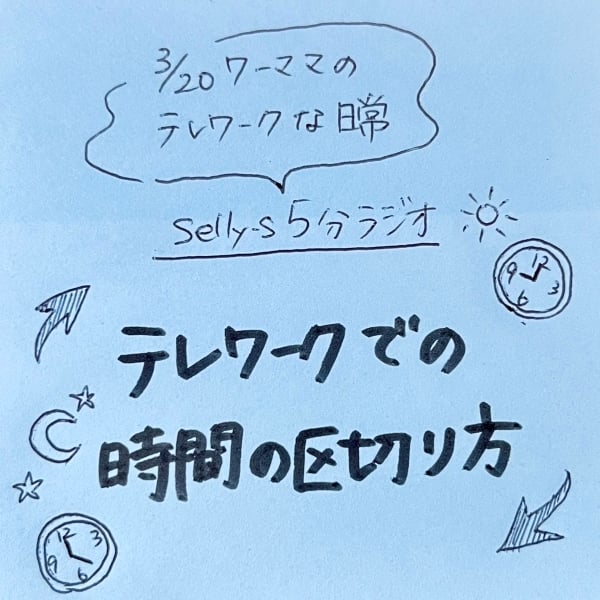 3/20 ワーママの
テレワークな日常
Selly-s 5分ラジオ
12
9 3
6
テレワークでの
時間の区切り方
12
9 3
6